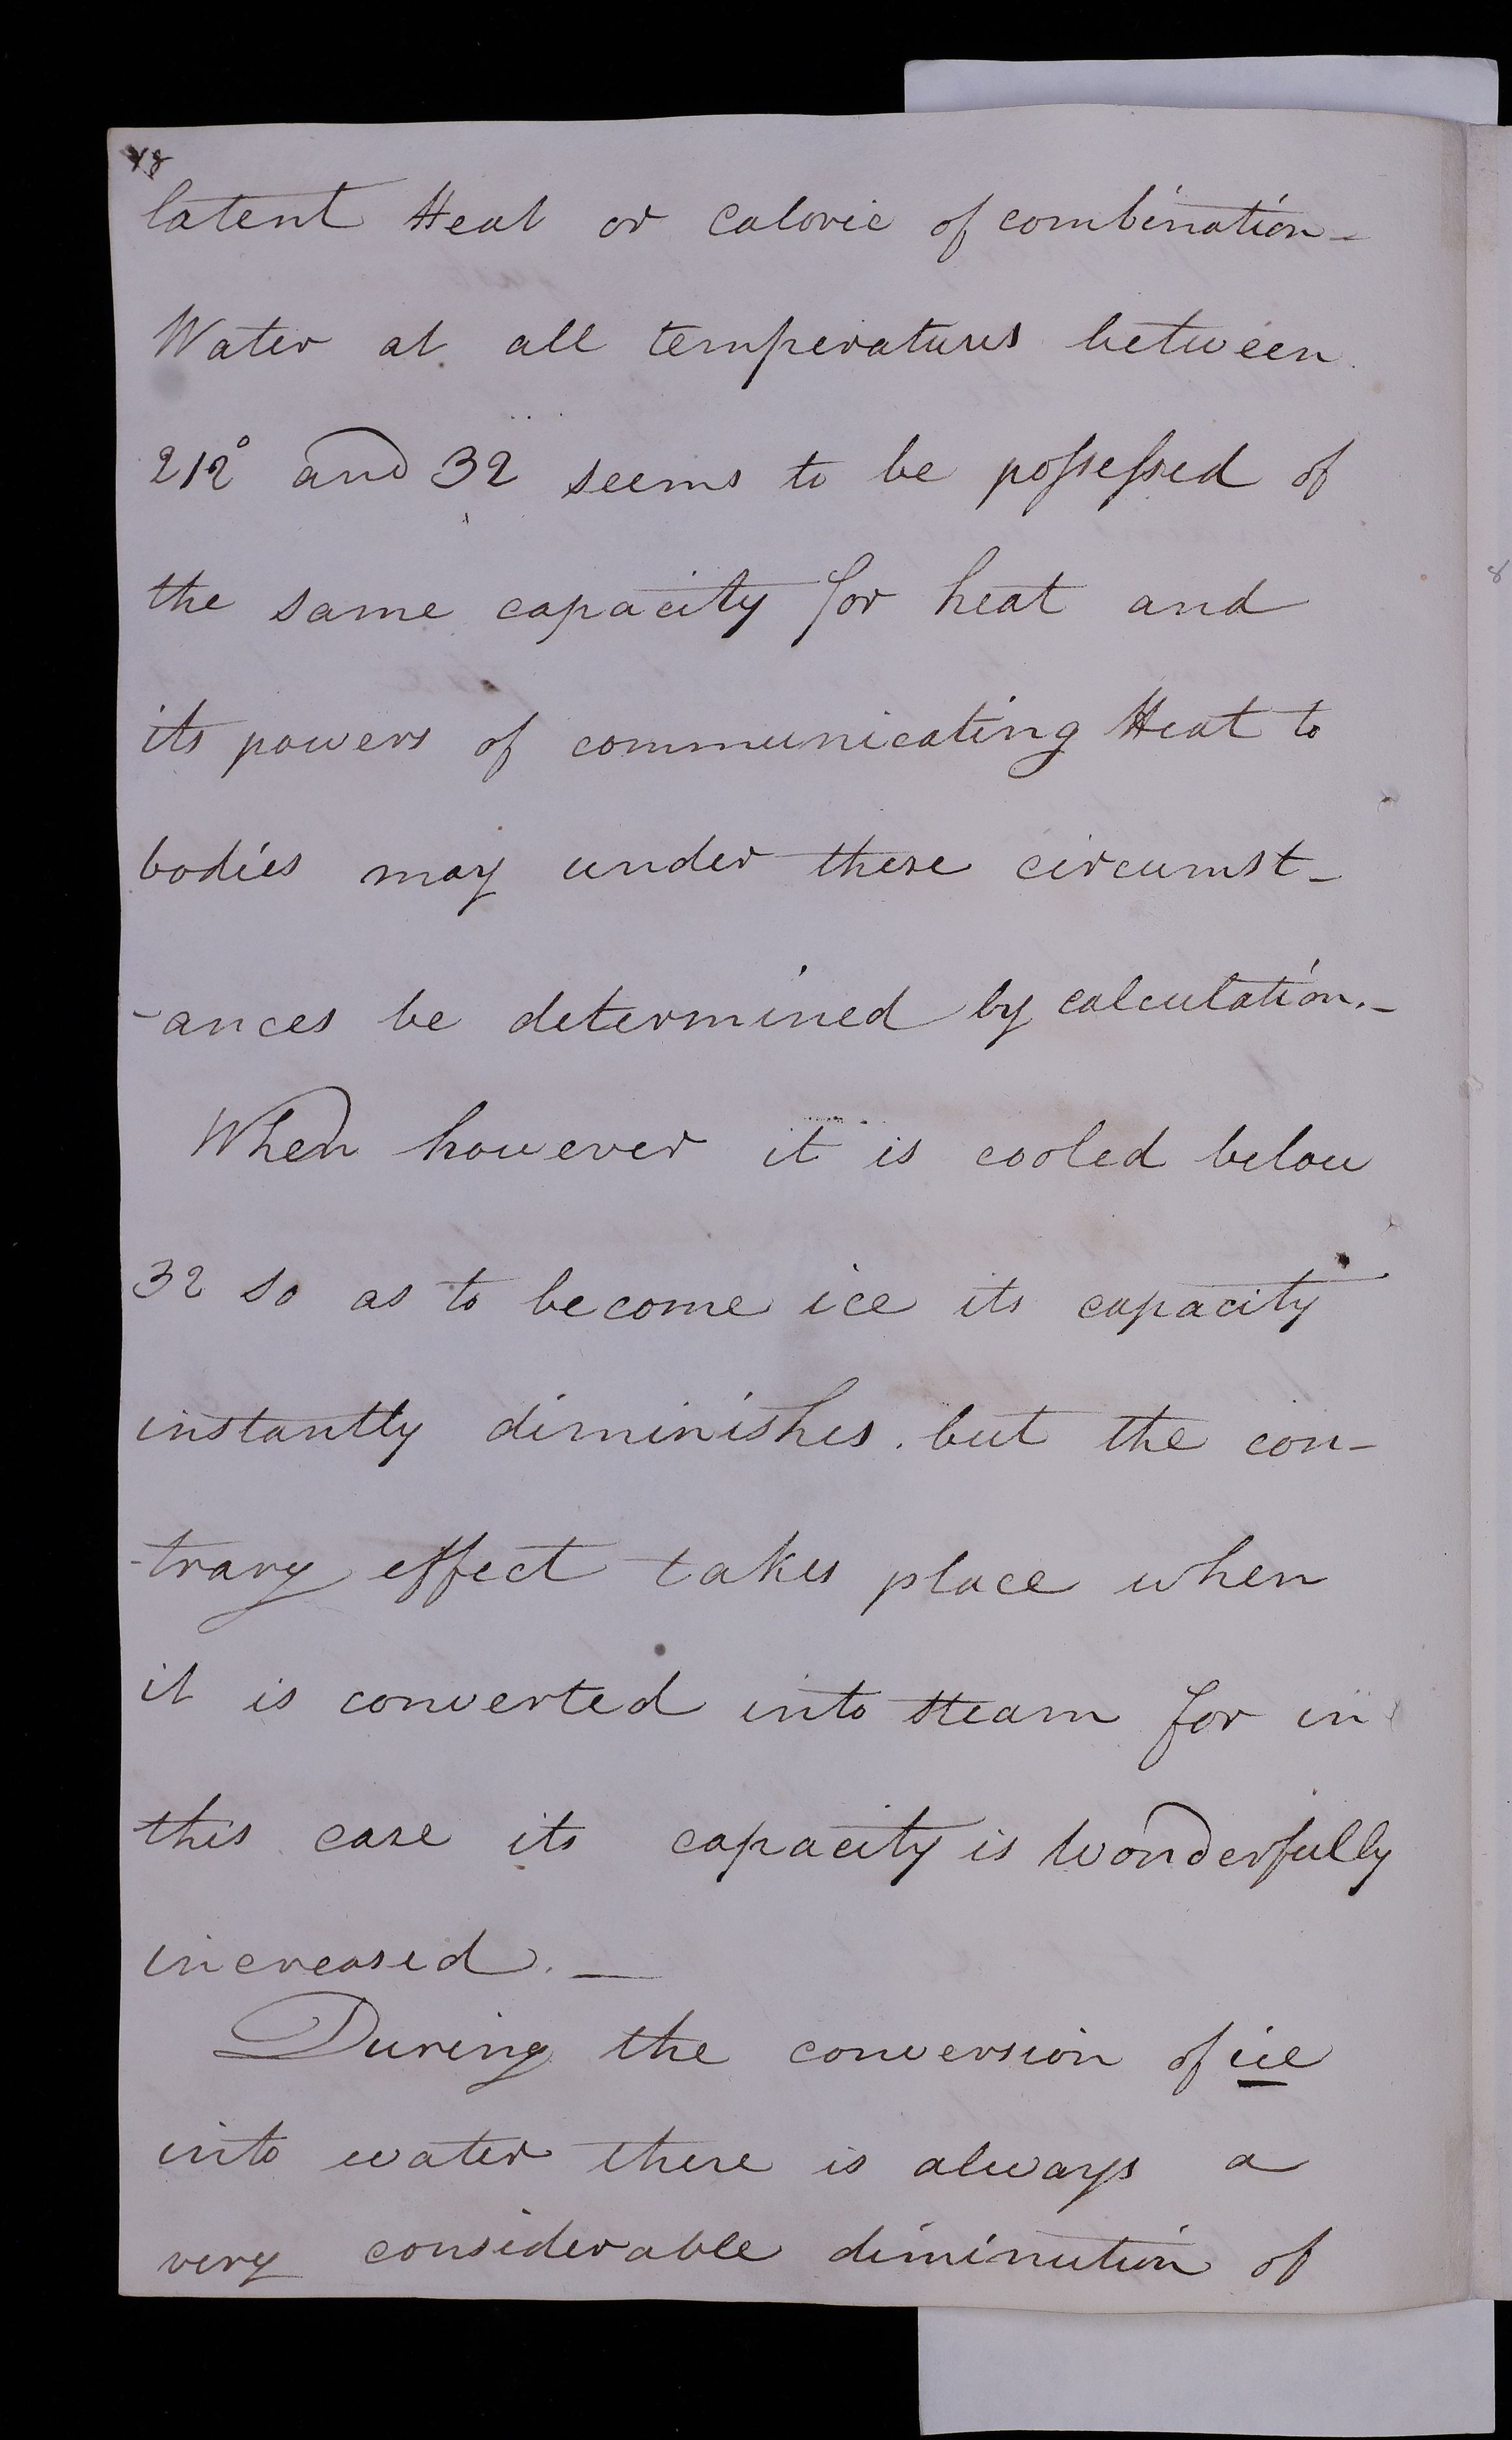 48
latent Heat or Caloric of combination_
Water at all temperatures between
212° and 32 seems to be possessed of
the same capacity for heat and
its powers of communicating Heat to
bodies may under these circumst_
-ances be determined by calculation._
When however it is cooled below
32 so as to become ice its capacity
instantly diminishes. but the con-
-trary effect takes place when
it is converted into steam for in
this case its capacity is wonderfully
increased._
During the conversion of ice
into water there is always a
very considerable diminution of